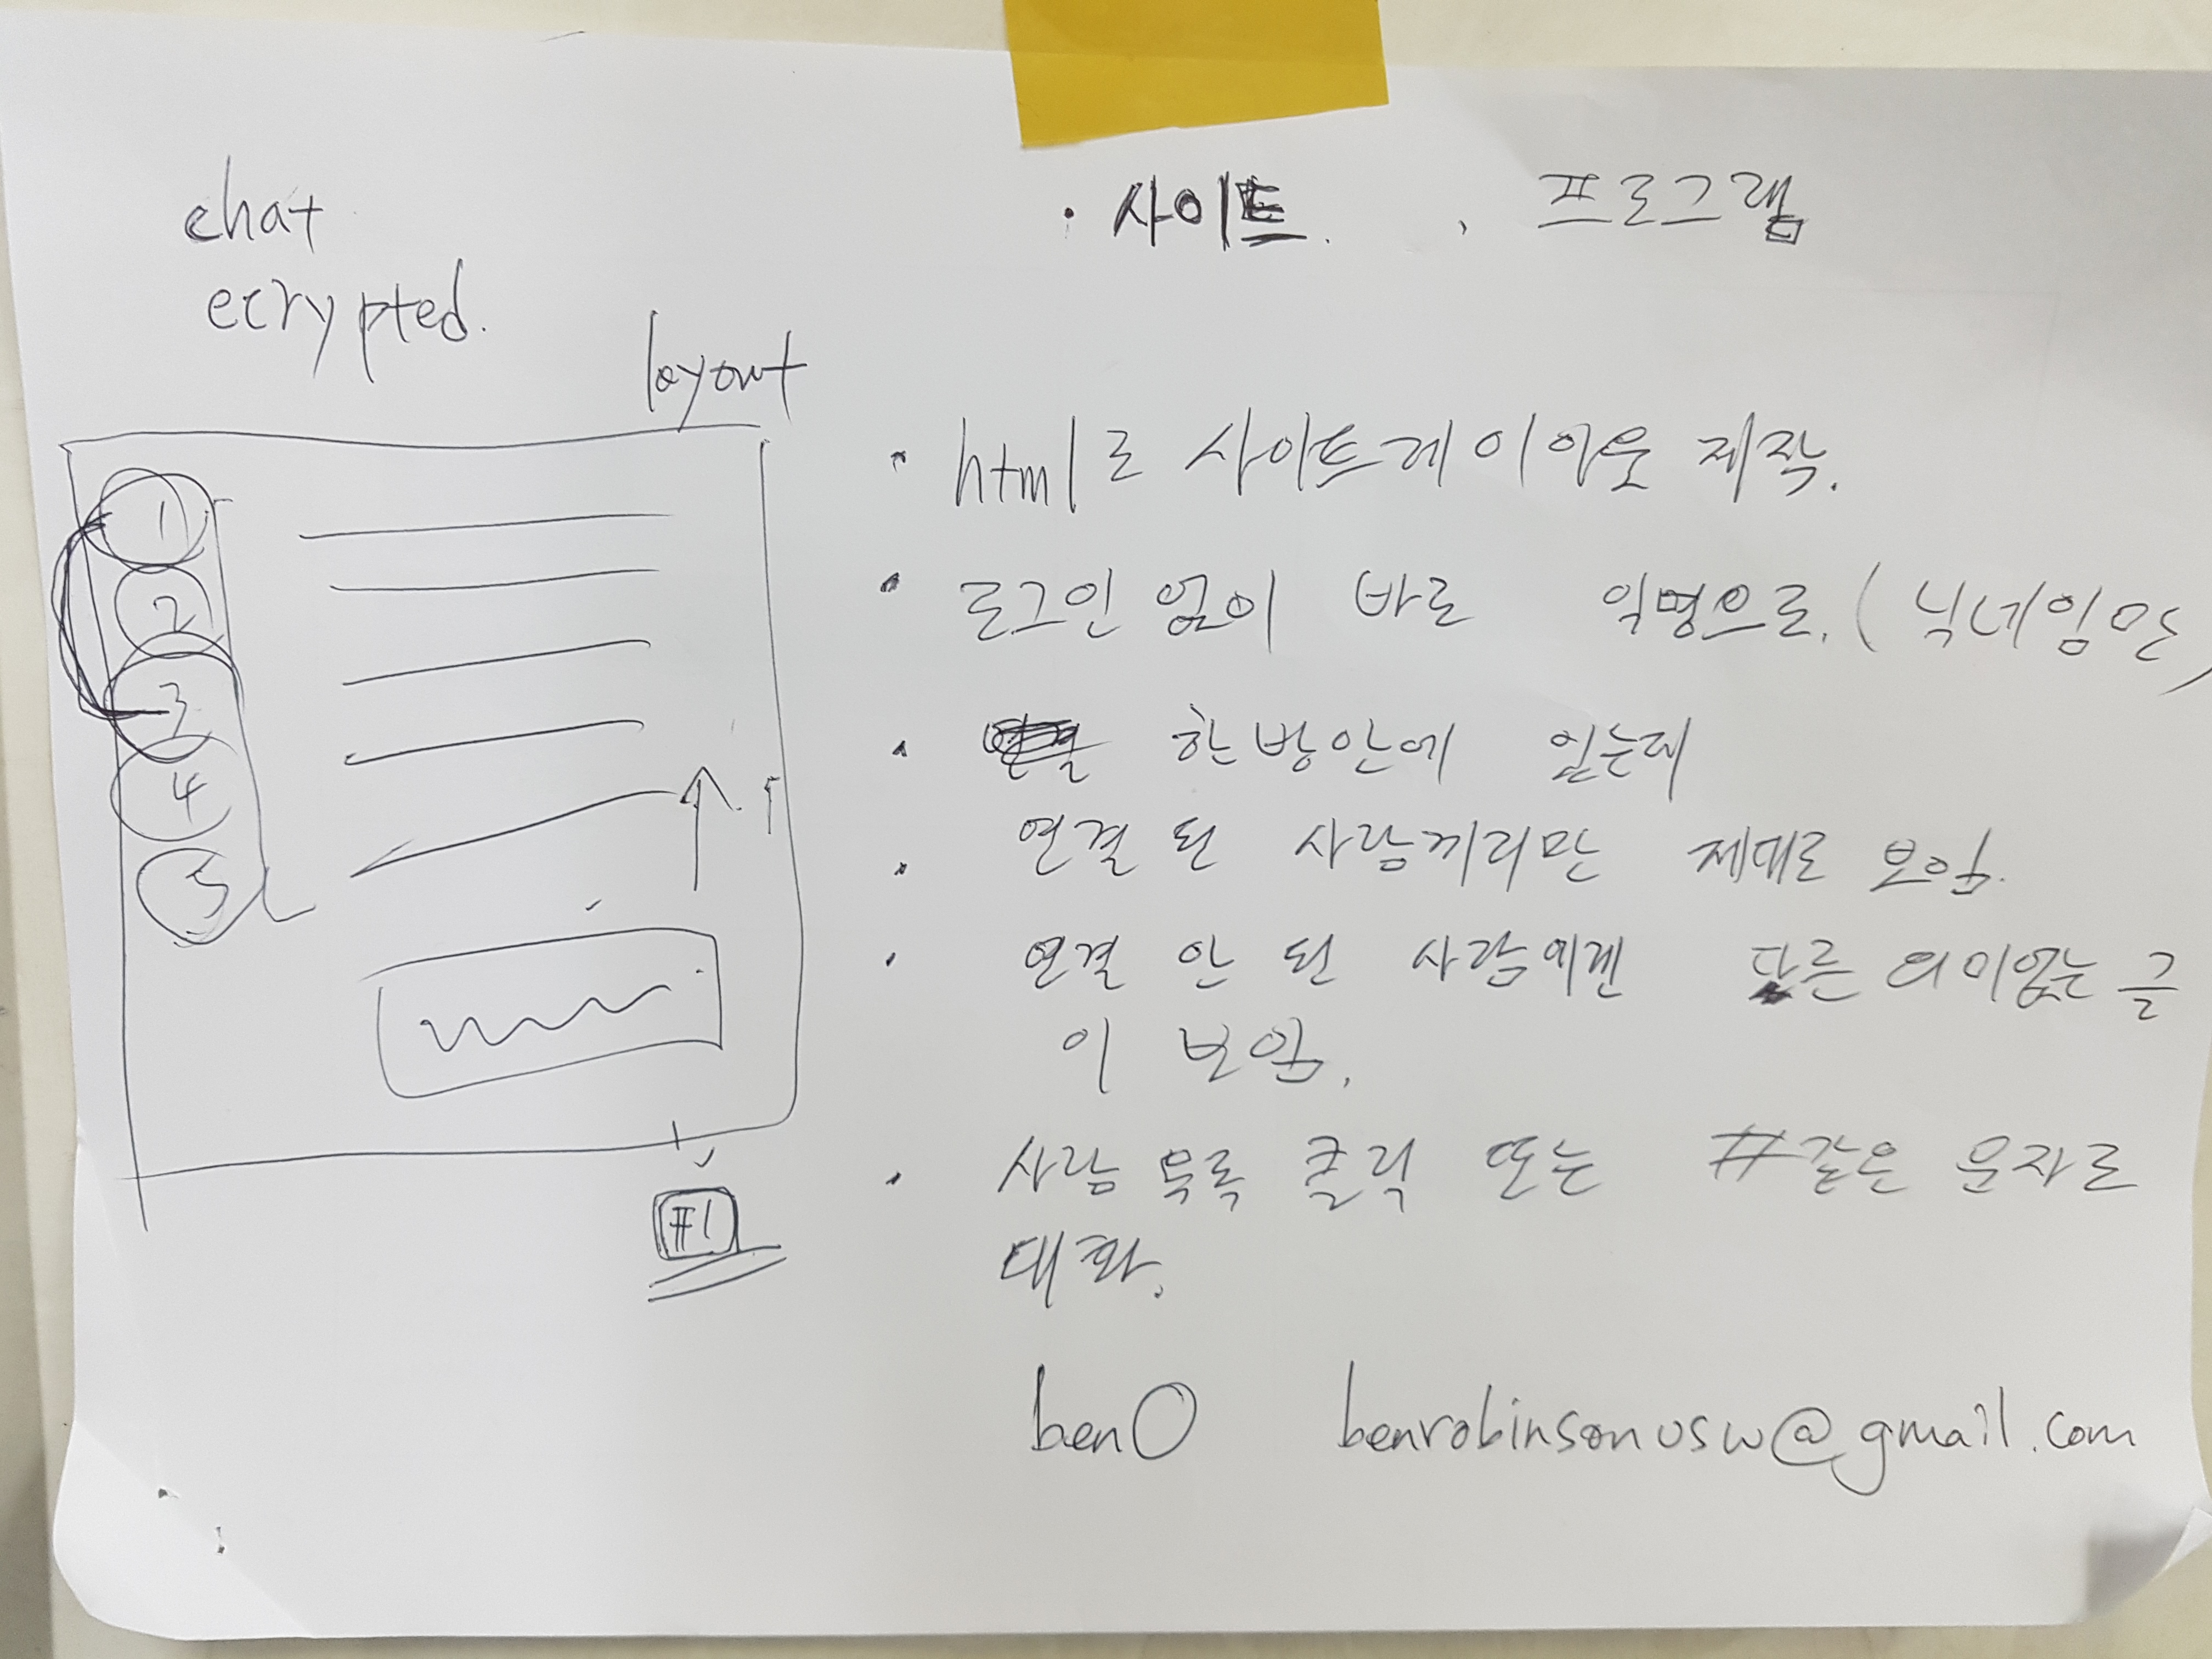 chat
ecrypted.
layout
1
2
3
4
5
#1
· 사이트. . 프로그램
· html로 사이트레이아웃 제작.
· 로그인 없이 바로 익명으로. (닉네임만)
· 한방안에 있는데
· 연결 된 사람끼리만 제대로 보임.
· 연결 안 된 사람에겐 다른 의미없는 글
이 보임.
· 사람 목록 클릭 또는 #같은 문자로
대화.
benO benrobinsonusw@gmail.com